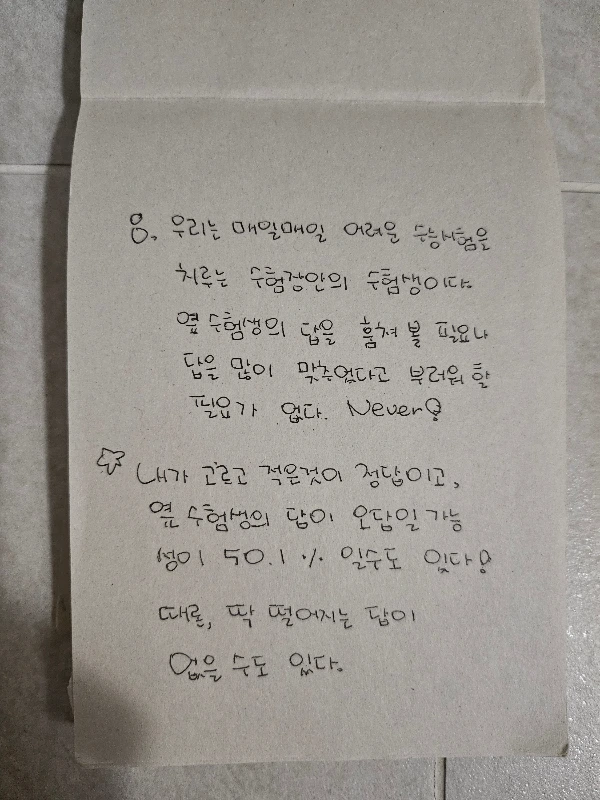 8. 우리는 매일매일 어려운 수능시험을
치루는 수험장안의 수험생이다.
옆 수험생의 답을 훔쳐 볼 필요나
답을 많이 맞추었다고 부러워 할
필요가 없다. Never!
☆ 내가 고르고 적은것이 정답이고,
옆 수험생의 답이 오답일 가능
성이 50.1 % 일수도 있다!
때론, 딱 떨어지는 답이
없을 수도 있다.